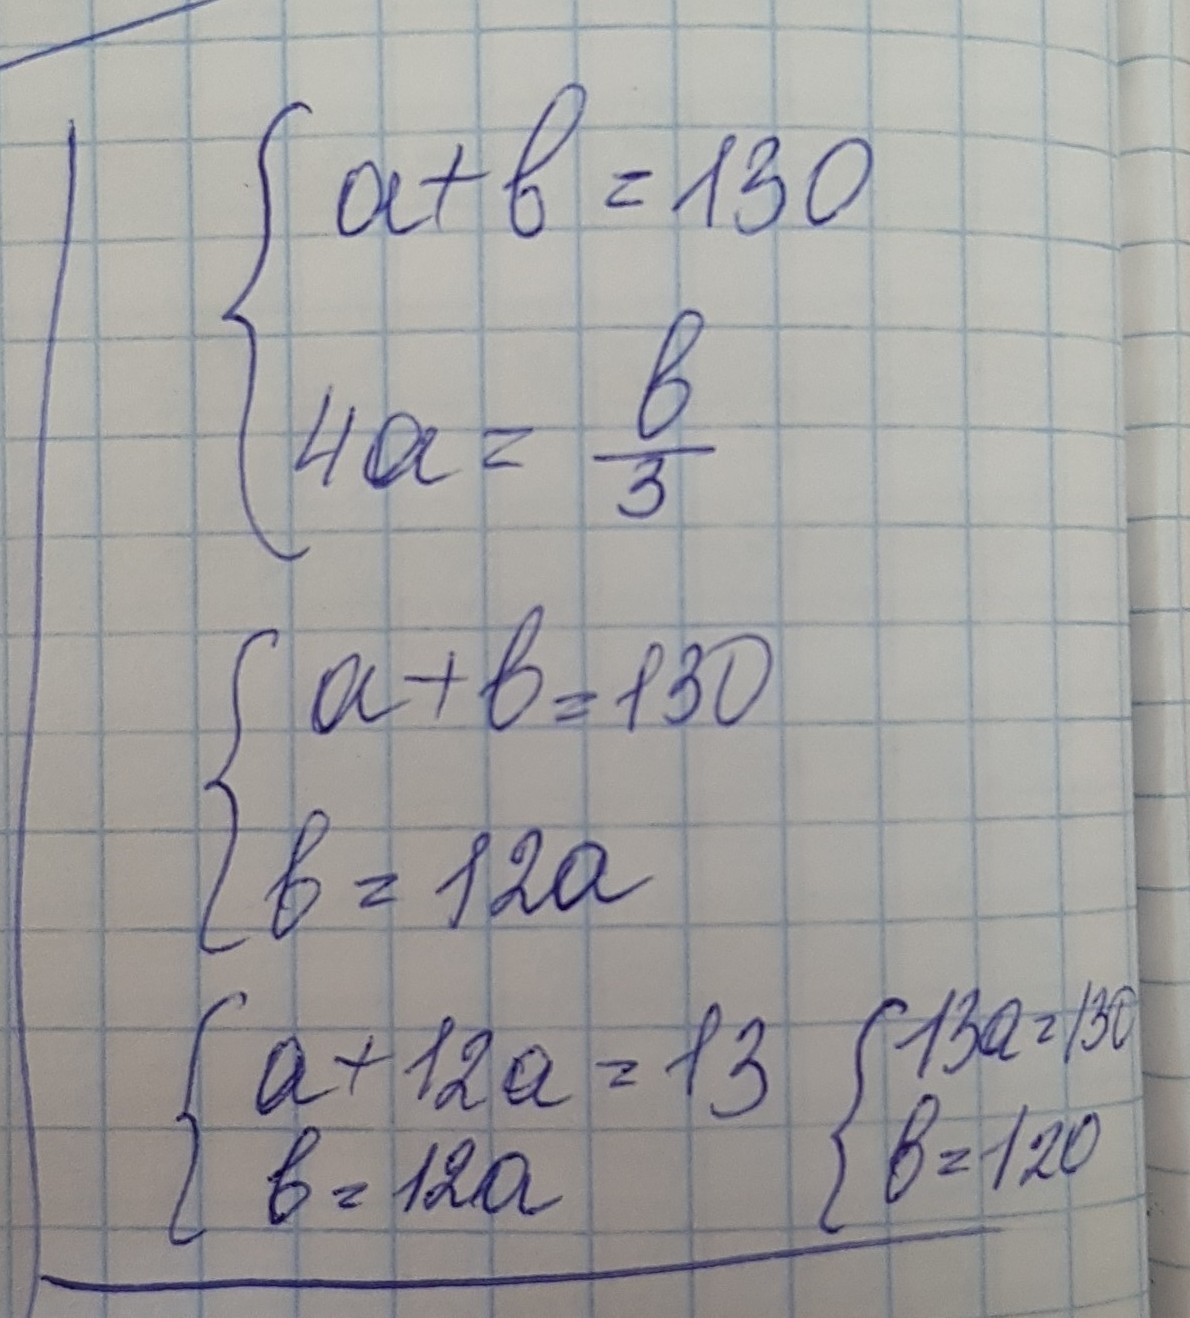 a+b=130
4a=b/3
a+b=130
b=12a
a+12a=13
b=12a
13a=130
b=120